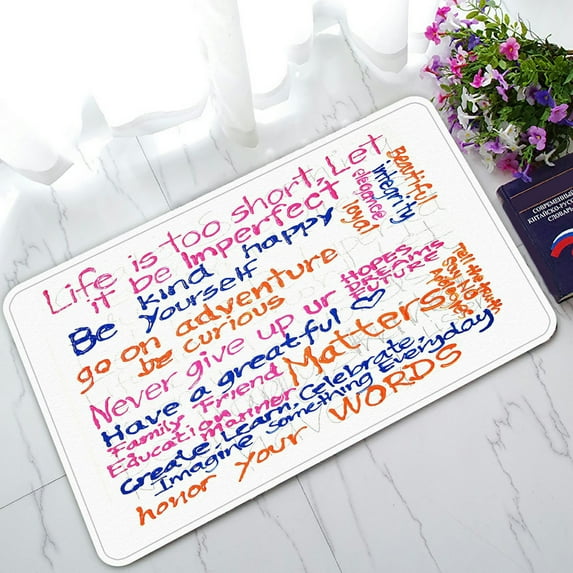 Life is too short, Let
it be Imperfect
Be kind happy
Yourself
go on adventure
be curious
Never give up ur HOPES
DREAMS
FUTURE
Have a greatful
Family Friend Matters
Education Manner
Create, Learn, Celebrate,
Imagine something Everyday
honor your WORDS
Beautiful
integrity
elegance
loyal
СОВРЕМЕННЫЙ
КИТАЙСКО-РУССКИЙ
СЛОВАРЬ